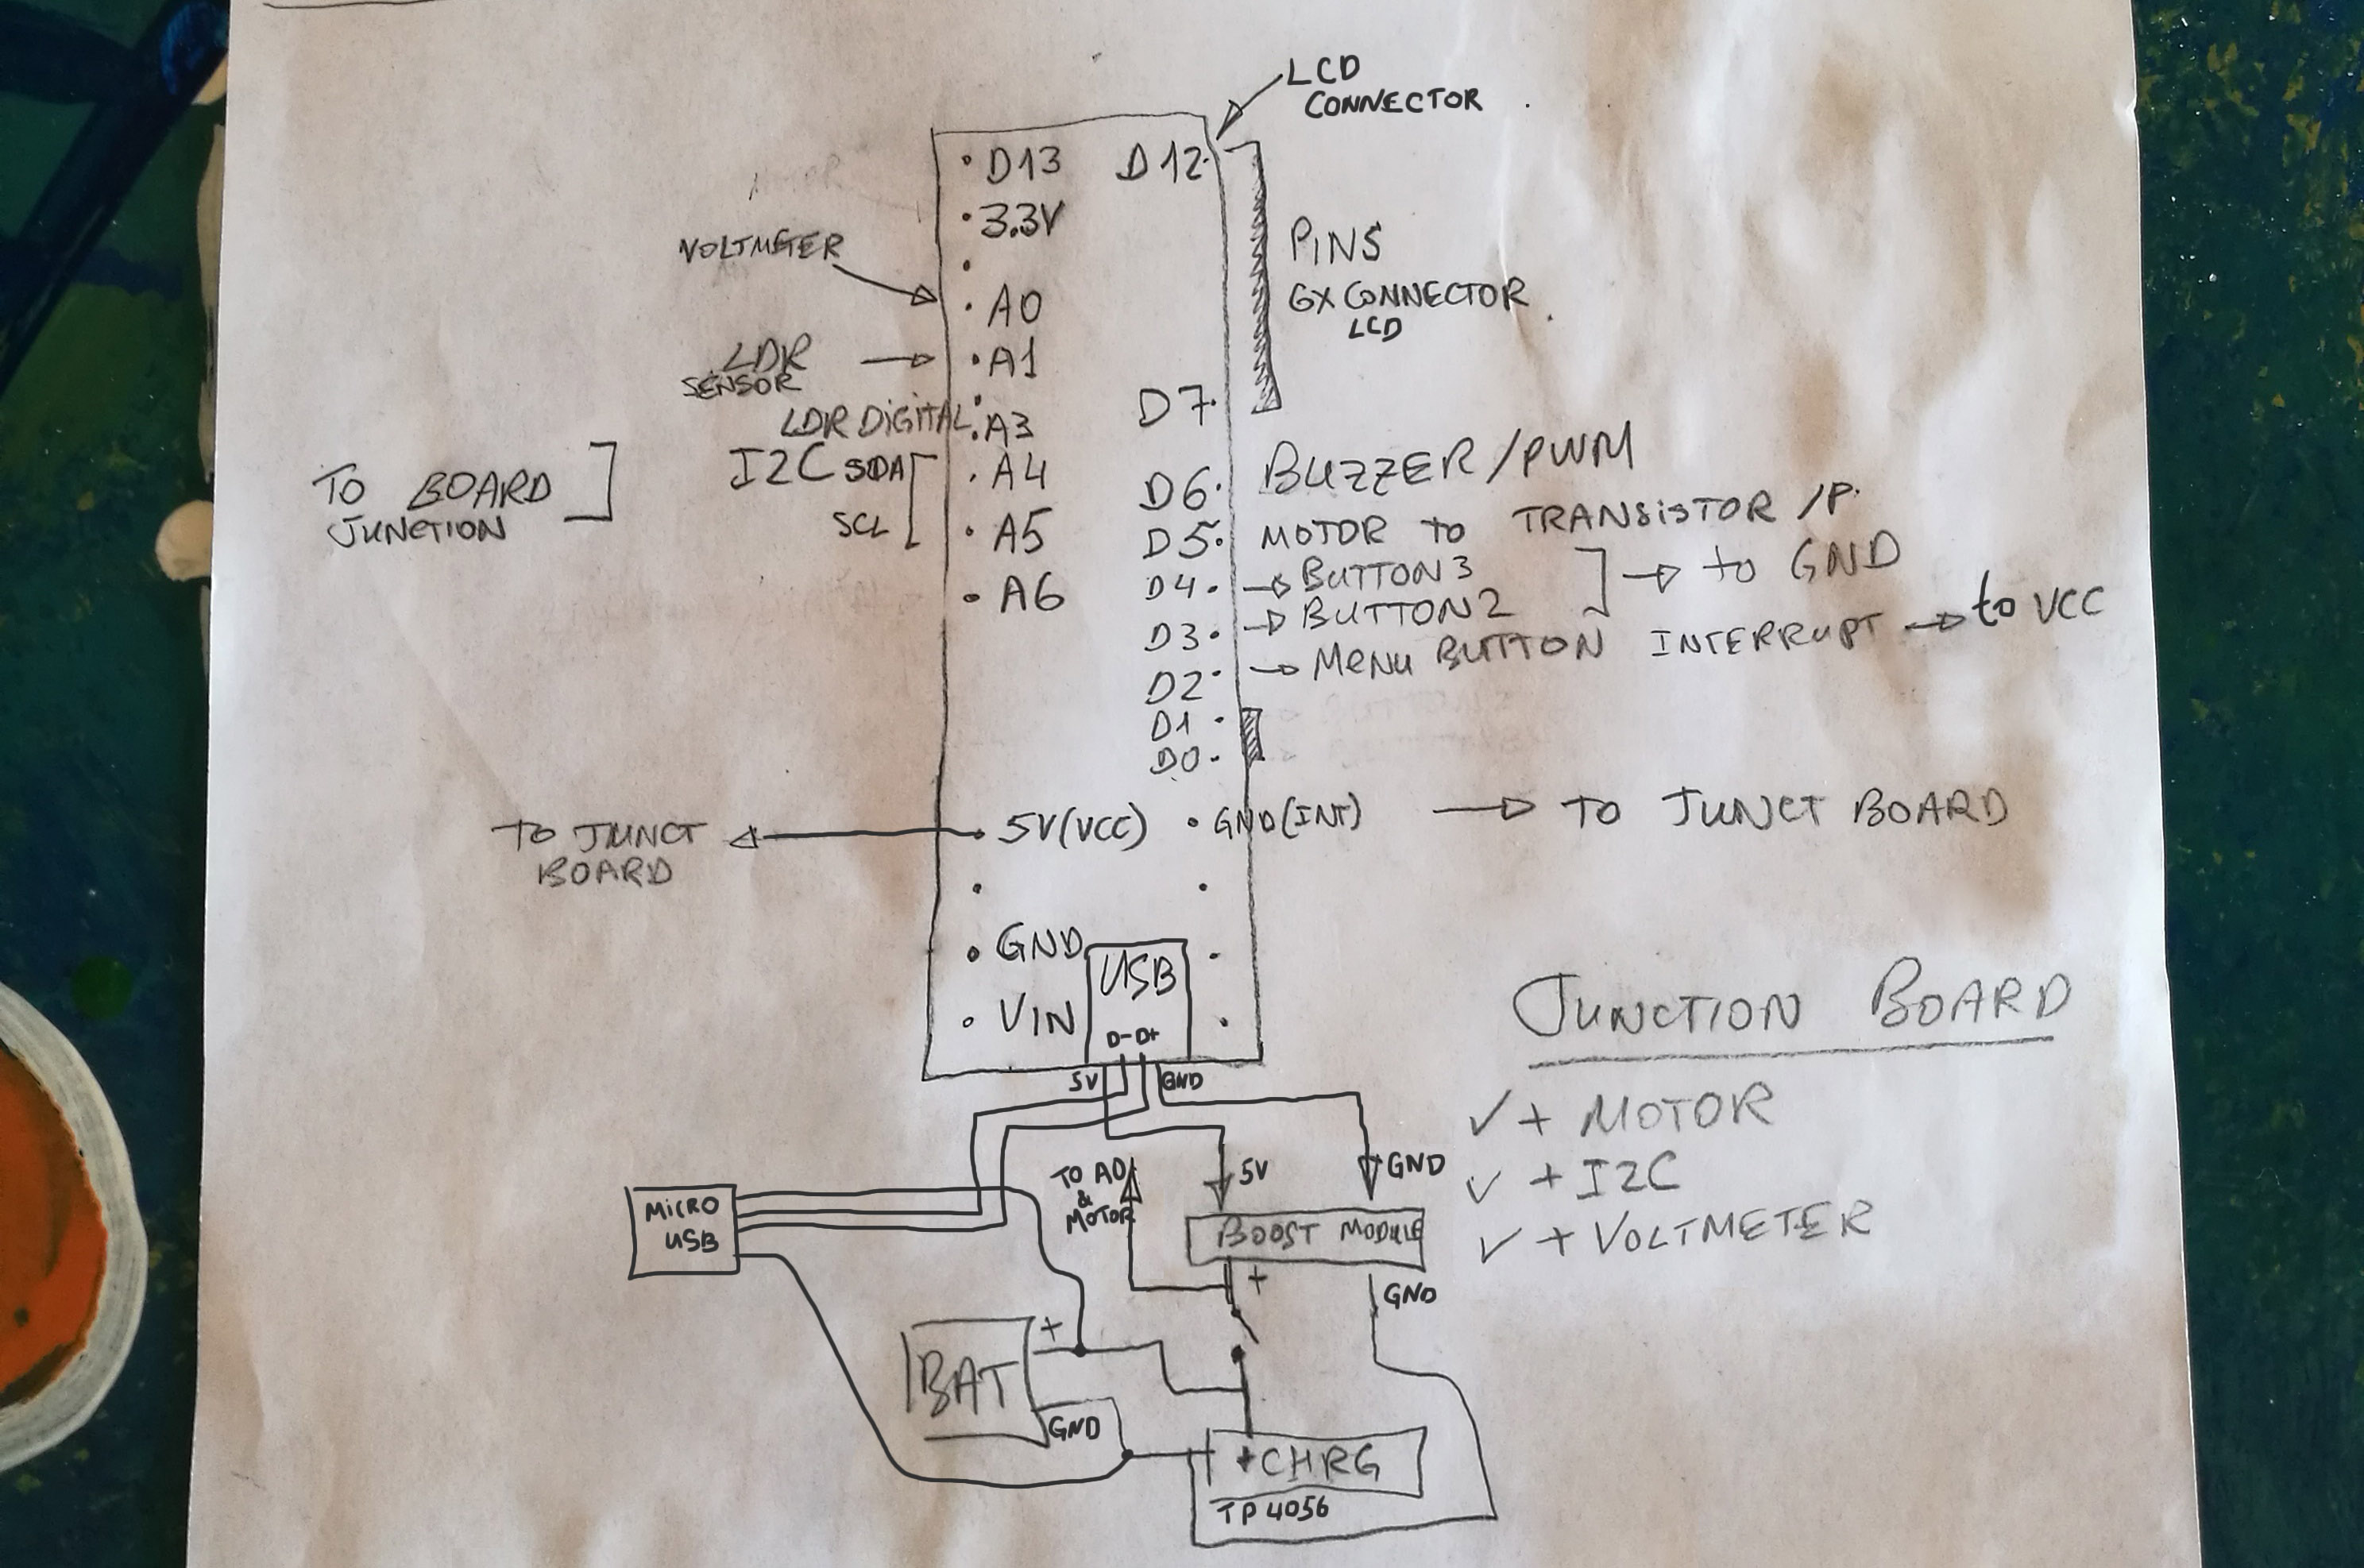 LCD
CONNECTOR
D13 D12
3.3V
VOLTMETER
A0
PINS
6X CONNECTOR
LCD
LDR
SENSOR
A1
D7
LDR DIGITAL
A3
I2C SDA
A4
TO BOARD
JUNCTION
SCL
A5
A6
D6 BUZZER/PWM
D5 MOTOR to TRANSISTOR /P.
D4 BUTTON3
D3 BUTTON2
to GND
D2 MENU BUTTON INTERRUPT to VCC
D1
D0
TO JUNCT
BOARD
5V(VCC) GND(INT) TO JUNCT BOARD
GND
VIN
USB
D- D+
5V GND
JUNCTION BOARD
✓ + MOTOR
✓ + I2C
✓ + VOLTMETER
MICRO
USB
TO A0
&
MOTOR
5V
GND
BOOST MODULE
+
GND
BAT
+
GND
+CHRG
TP4056